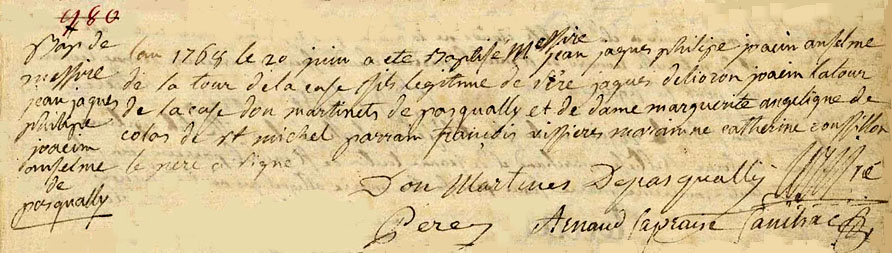 480
Bap de
messire
jean jaques
philipe
joacim
anselme
de
pasqually
Lan 1768 le 20 juin a ete Baptisé Messire jean jaques philipe joacin anselme
de la tour de la case fils legitime de jaques delioron joacin latour
de la case don martinets de pasqually et de dame margueritte angelique de
colas de st michel parrain françois vissiers maraine catherine
le pere a signe
Don Martines Depasqually
Pere Arnaud